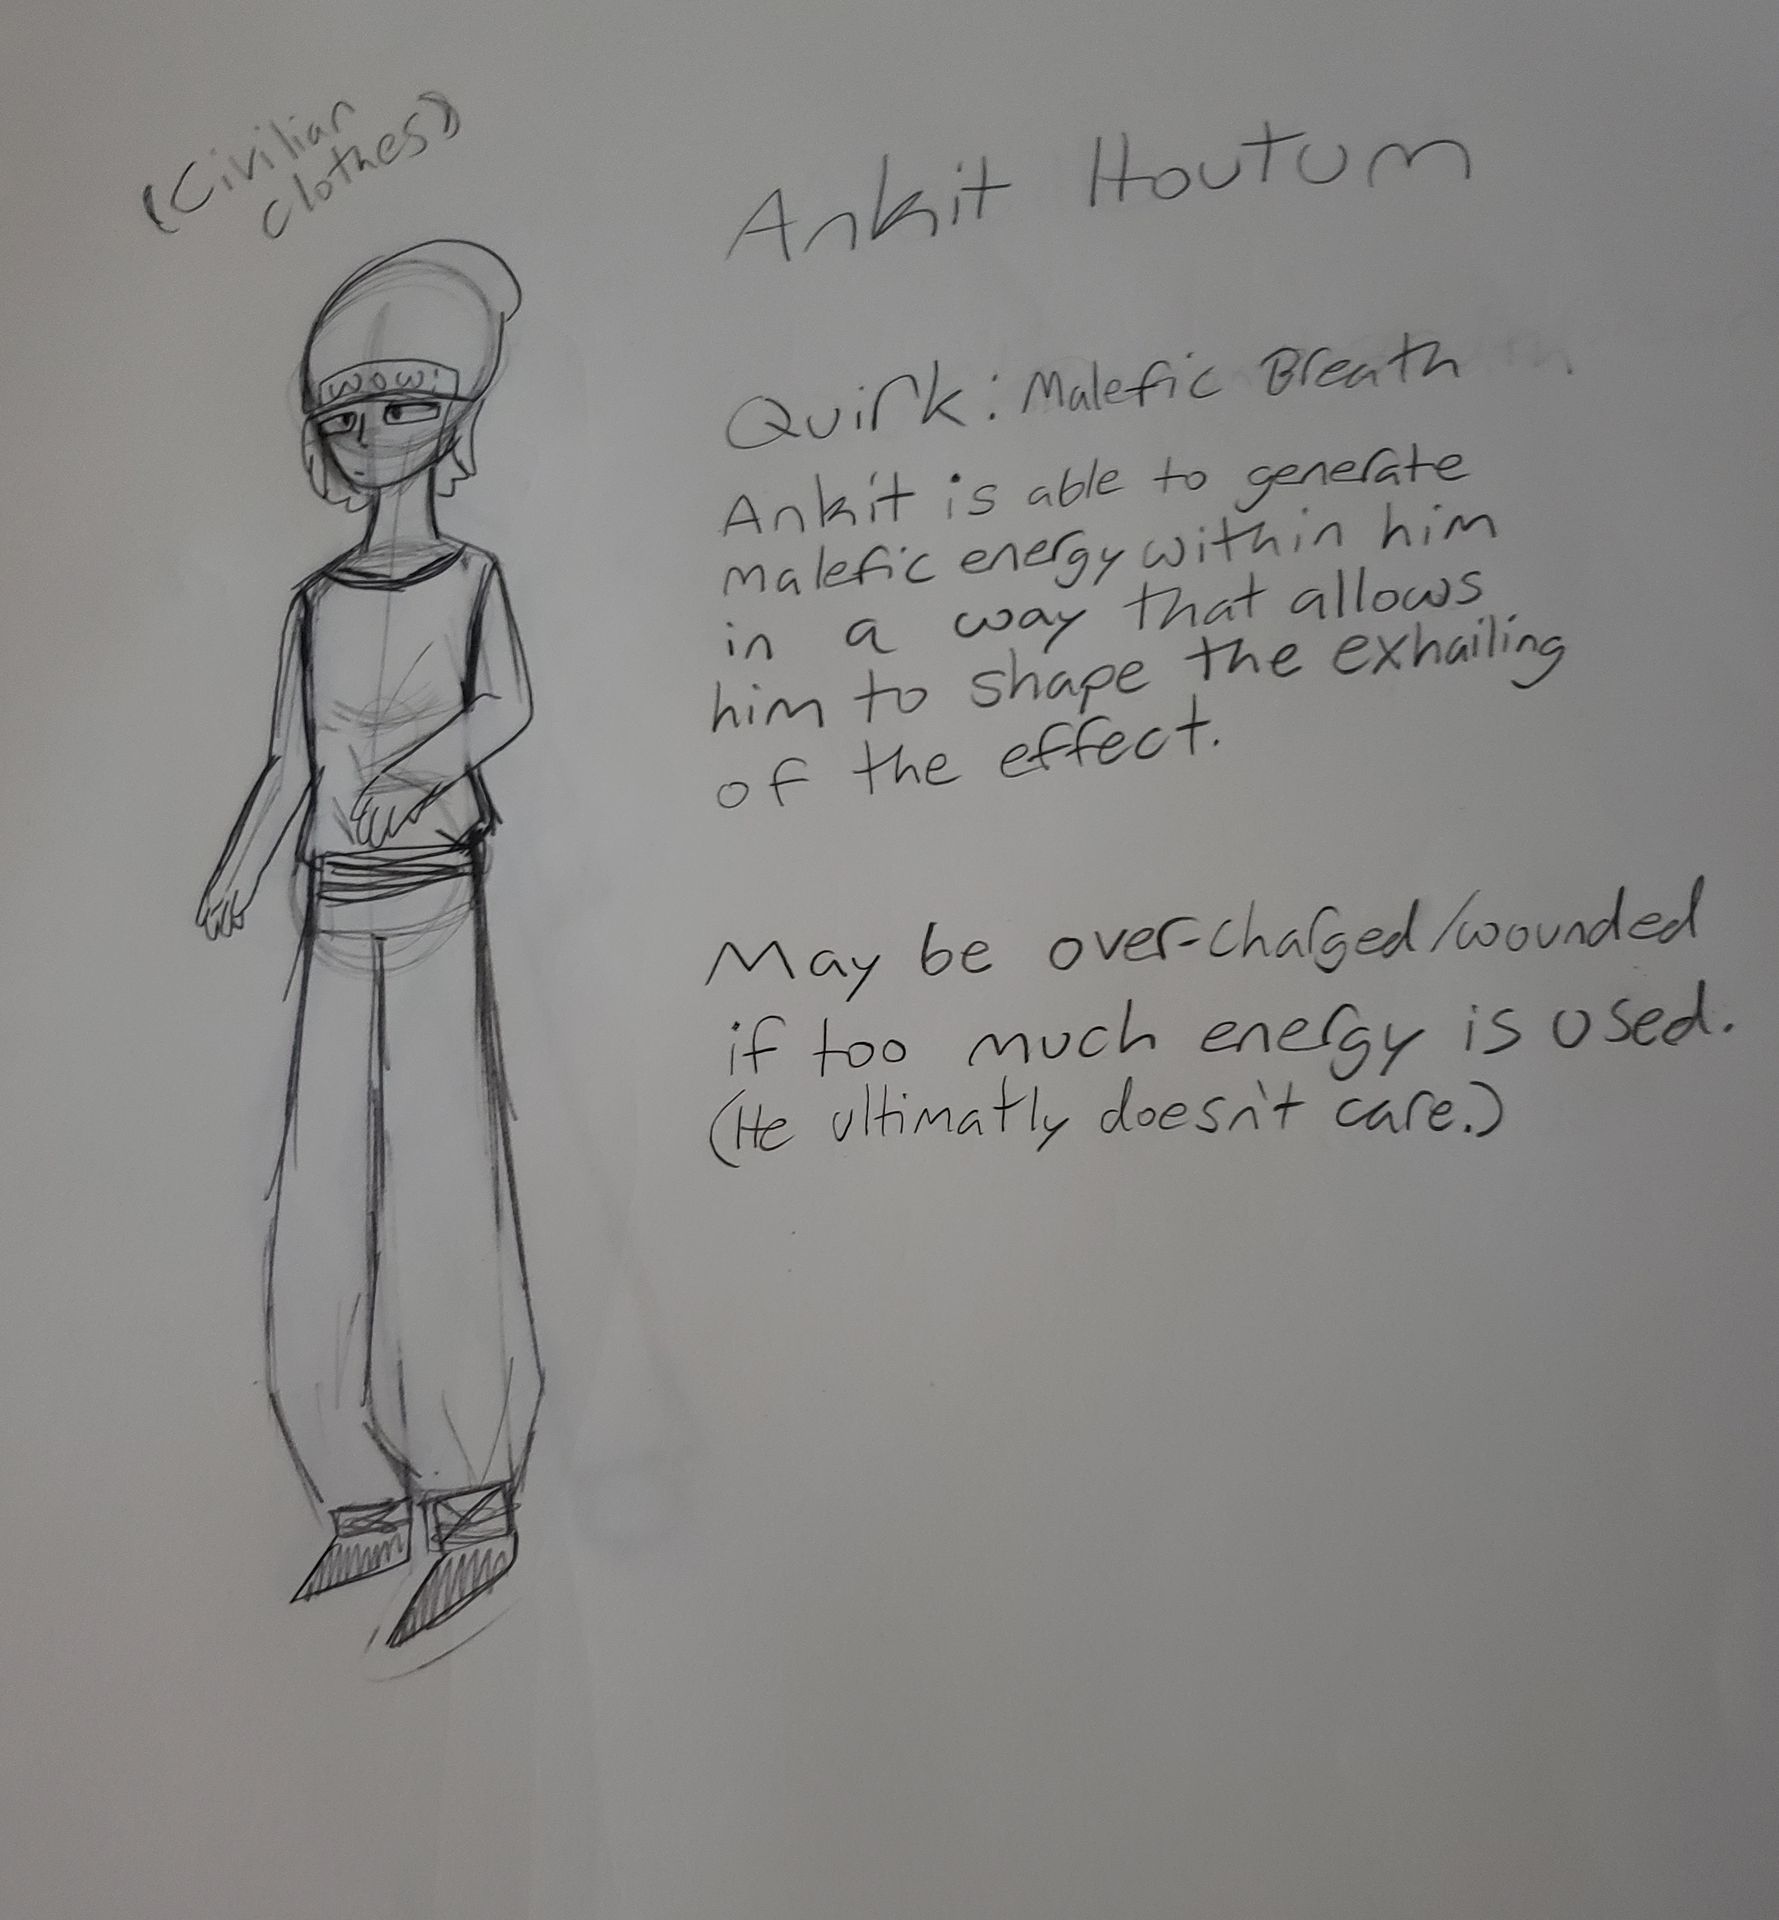 (Civilian
clothes)
Ankit Houtum
wow!
Quirk: Malefic Breath
Ankit is able to generate
malefic energy within him
in a way that allows
him to shape the exhailing
of the effect.
May be over-charged/wounded
if too much energy is used.
(He ultimatly doesn't care.)